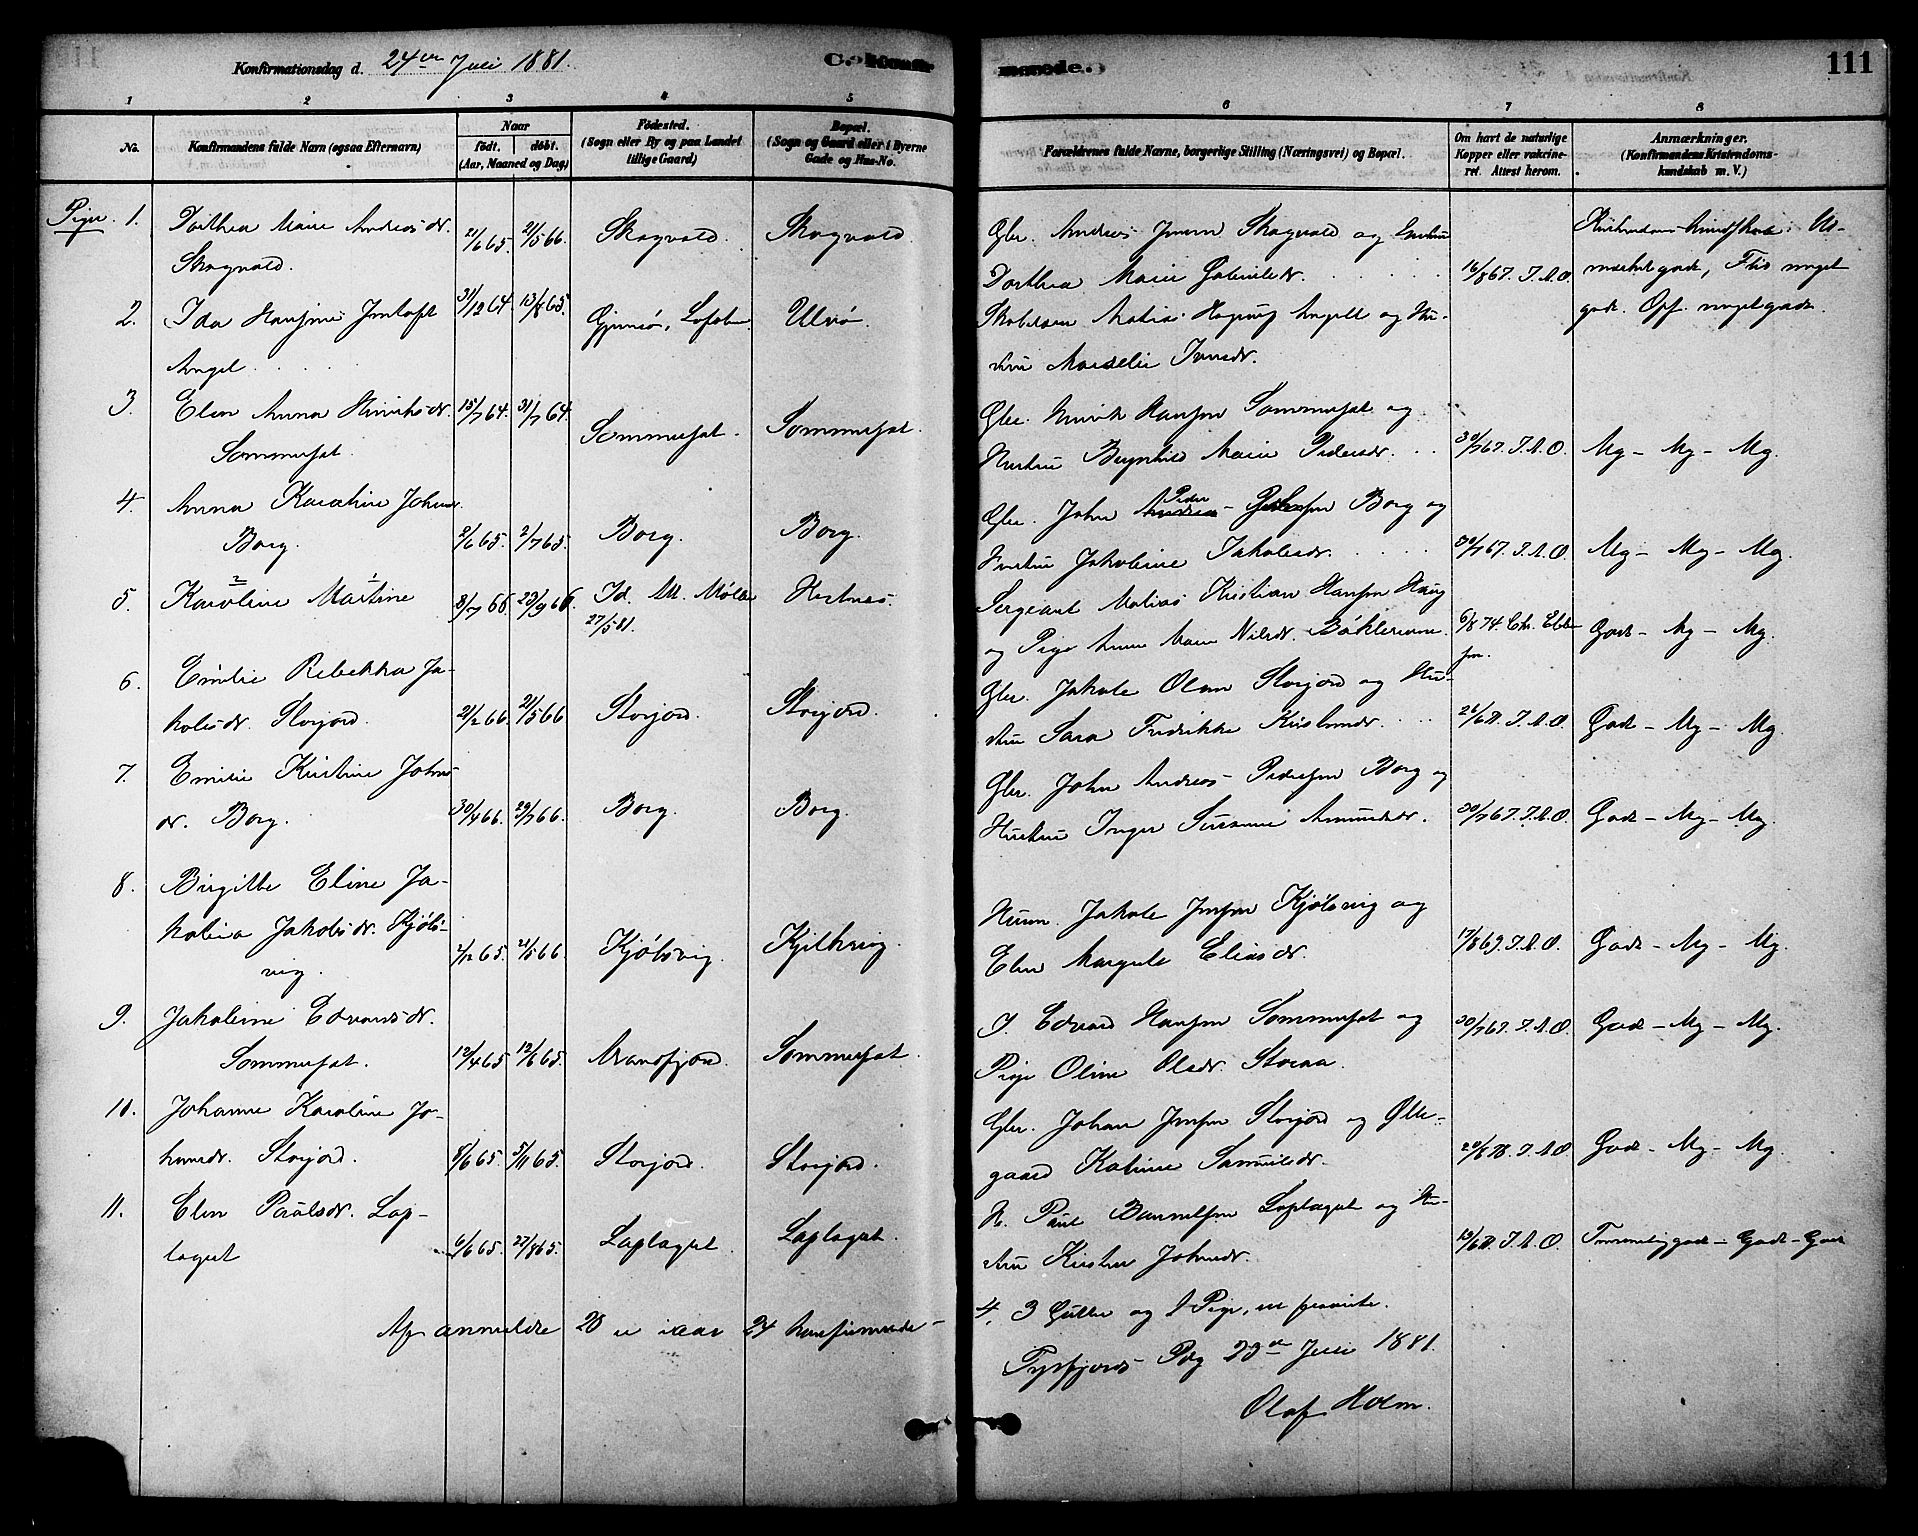 Konfirmationsdag d. 24de Juli 1881.
C. Konfir-
merede.
111
1 2 3 4 5 6 7 8
No.
Konfirmandens fulde Navn (ogsaa Efternavn)
Naar
født. døbt.
(Aar, Maaned og Dag)
Fødested.
(Sogn eller By og paa Landet
tillige Gaard)
Bopæl.
(Sogn og Gaard eller i Byerne
Gade og Hus-No.
Forældrenes fulde Navne, borgerlige Stilling (Næringsvei) og Bopæl.
Om havt de naturlige
Kopper eller vakcine-
ret. Attest herom.
Anmærkninger.
(Konfirmandens Kristendoms-
kundskab m. V.)
Piger. 1. Dorthea Marie Andreasdr.
Skogvold.
21/6 65. 21/5 66. Skogvold. Skogvold.
Gbr. Andreas Jensen Skogvold og Hustru
Dorthea Marie Gabrielsdr.
16/8 67. J.A.O.
Kristendoms-Kundskab: Ud-
mærket godt, Flid meget
godt. Opf. meget godt.
2. Ida Hansine Jentoft
Angel
31/12 64. 13/8 65. Gimsø, Lofoten. Ulvø.
Matias Hagerup Angell og Hu-
stru
3. Elen Anna Hinriksdr.
Sommerset.
15/7 64. 31/7 64. Sommerset. Sommerset.
Gbr. Hinrik Hansen Sommerset og
Hustru Berynhild Marie Pedersdr.
30/7 67. J.A.O. Mg – Mg – Mg.
4. Anna Karoline Johnsdr.
Borg.
2/6 65. 2/7 65. Borg. Borg.
Gbr. John Andreas Peder Borg og
Hustru Jakobine Jakobsdr.
30/7 67. J.A.O. Mg – Mg – Mg.
5. Karoline Martine
8/7 66. 23/9 66. Id. M. Møller
27/5 81.
Hestnes.
Sergeant Matias Kristian Hansen Haug
og Pige Anne Marie Nilsdr.
6/8 74. Chr. Ebbe-
sen. Godt – Mg – Mg.
6. Emilie Rebekka Ja-
kobsdr. Storjord.
21/2 66. 21/5 66 Storjord. Storjord.
Gbr. Jakob Olsen Storjord og Hu-
stru Sara Fredrikke
J.A.O. Godt – Mg – Mg.
7. Emilie Kirstine Johns-
dr. Borg.
30/4 66. 29/7 66. Borg. Borg.
Gbr. John Andreas Pedersen Borg og
Hustru Inger Susanne Amundsdr.
30/7 67. J.A.O. Godt – Mg – Mg.
8. Birgitte Eline Ja-
kobea Jakobsdr. Kjøls-
vig.
2/12 65. 21/5 66. Kjølsvig.
Husm. Jakob Jensen Kjølsvig og
Elen Margrete Eliasdr.
17/8 69. J.A.O. Godt – Mg – Mg.
9. Jakobine Edvardsdr.
Sommerset.
12/4 65. 12/6 65. Sommerset.
I. Edvard Hansen Sommerset og
Pige Oline Olsdr. Storaa.
30/7 67. J.A.O. Godt – Mg – Mg.
10. Johanne Karoline Jo-
hansdr. Storjord.
8/6 65. 5/11 65. Storjord. Storjord.
Gbr. Johan Jensen Storjord og Olle-
gaard Katrine Samuelsdr.
J.A.O. Godt – Mg – Mg.
11. Elen Paulsdr. Lap-
laget
6/6 65. 27/8 65. Laplaget. Laplaget.
Paul Laplaget og Hu-
stru Kirsten Johnsdr.
J.A.O. Temmelig godt – Godt – Godt
Af anmeldte 28 er ikkun 24 konfirmerede –
4, 3 Gutter og 1 Pige, er
Tysfjords Pdg 29de Juli 1881.
Olaf Holm.